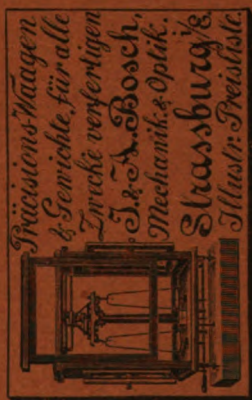 Präcisions-Waagen
& Gewichte, für alle
Zwecke verfertigen
J. & A. Bosch,
Mechanik & Optik.
Strassburg i/E.
Illustr. Preisliste.